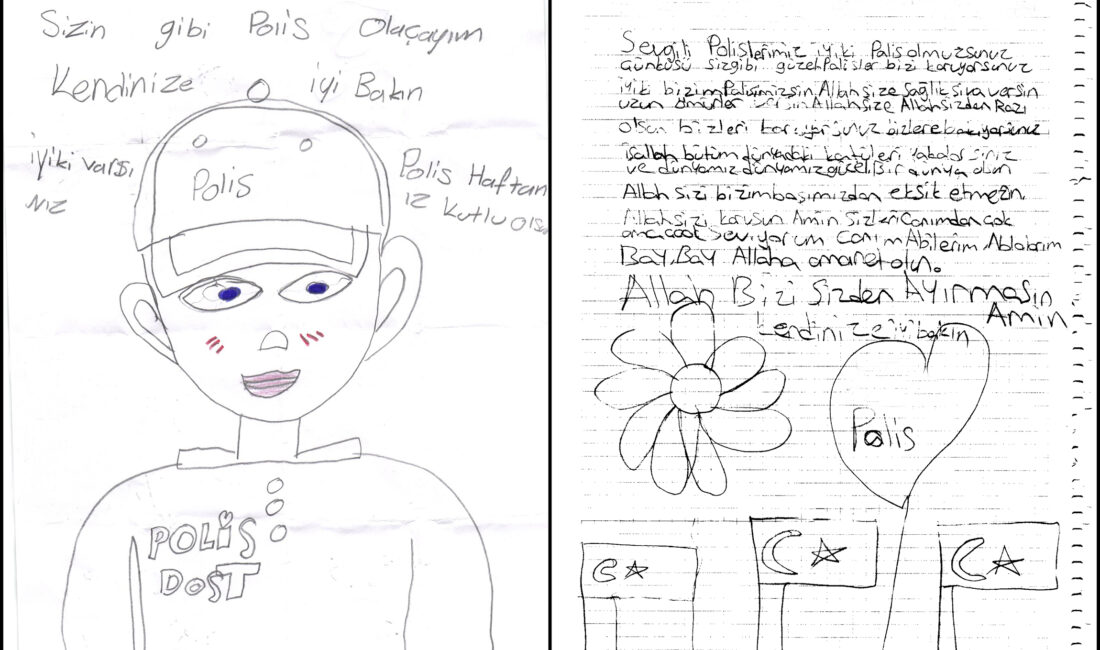 Sizin gibi Polis Olaçayım
Kendinize iyi Bakın
iyiki varsı
nız
Polis Haftan
ız kutlu olsun
Polis
POLİS
DOST
Sevgili Polislerimiz iyiki Polis olmuzsunuz
Günküsü sizgibi güzel Polisler bizi koruyorsunuz
iyiki bizim Polisimizsin Allah size Sağlık versin
uzun ömürler versin Allah size Allah sizden Razı
olsun bizleri koruyorsunuz bizlere bakıyorsunuz
isallah bütüm dünyadaki
ve dünyamız dünyamız güzel bir dünya olsun
Allah sizi bizim başımızdan eksik etmesin
Allah sizi korusun Amin sizleri Canımdan çok
ama cook seviyorum canım Abilerim Ablalarım
BAY BAY Allaha amanet olun.
Allah Bizi Sizden Ayırmasın
Amin
kendinize iyi bakın
Polis